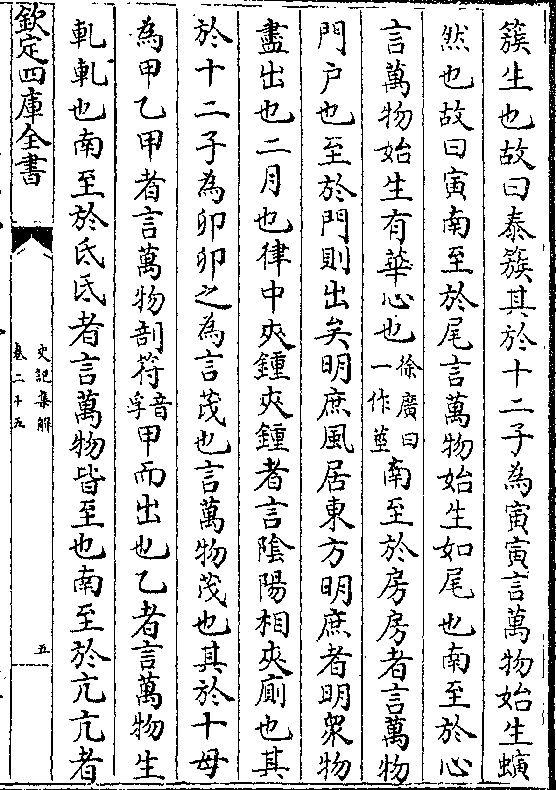 簇生也故曰泰簇其於十二子為寅寅言萬物始生螾
然也故曰寅南至於尾言萬物始生如尾也南至於心
言萬物始生有華心也徐廣曰一作莖南至於房房者言萬物
門户也至於門則出矣明庶風居東方明庶者明衆物
盡出也二月也律中夾鍾夾鍾者言陰陽相夾廁也其
於十二子為卯卯之為言茂也言萬物茂也其於十母
為甲乙甲者言萬物剖符音孚甲而出也乙者言萬物生
軋軋也南至於氐氐者言萬物皆至也南至於亢亢者
欽定四庫全書
史記集解
卷二十五
五